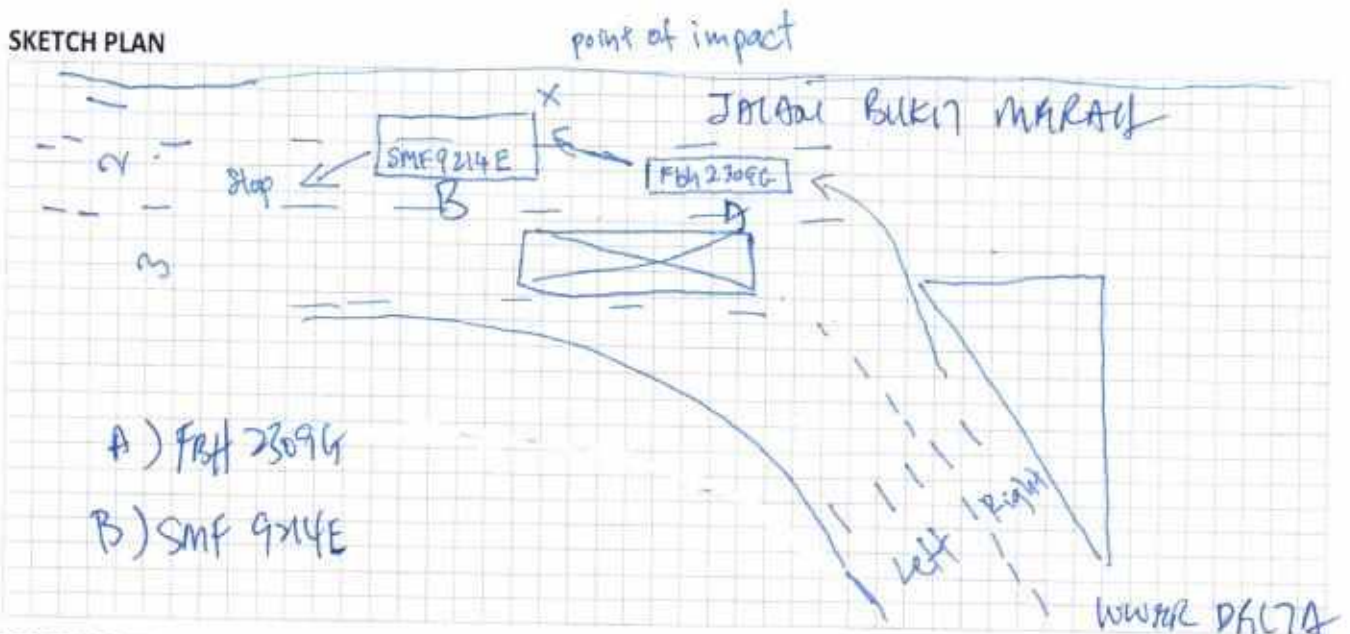 SKETCH PLAN
point of impact
JALAN BUKIT MERAH
2
Stop
SMF9214E
FBH2309G
B
A
3
A) FBH 2309G
B) SMF 9214E
Left
Right
LOWER DELTA